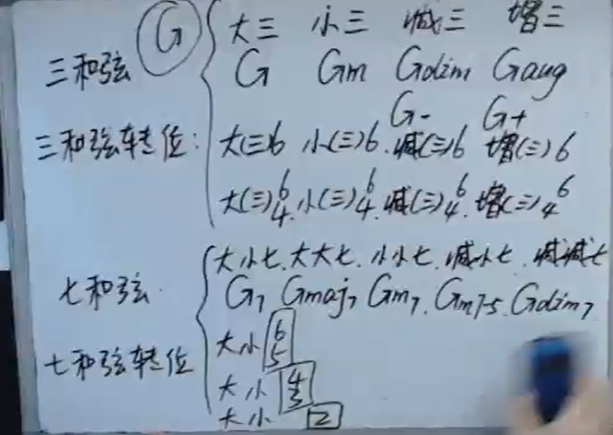 G 大三 小三 减三 增三
三和弦 G Gm Gdim Gaug
G- G+
三和弦转位: 大(三)6 小(三)6. 减(三)6 增(三)6
大(三)6 4. 小(三)6 4. 减(三)6 4. 增(三)6 4
大小七. 大大七. 小小七. 减小七. 减减七
七和弦. G7 Gmaj7 Gm7. Gm7-5. Gdim7
大小 6 5
七和弦转位
大小 4 3
大小 2